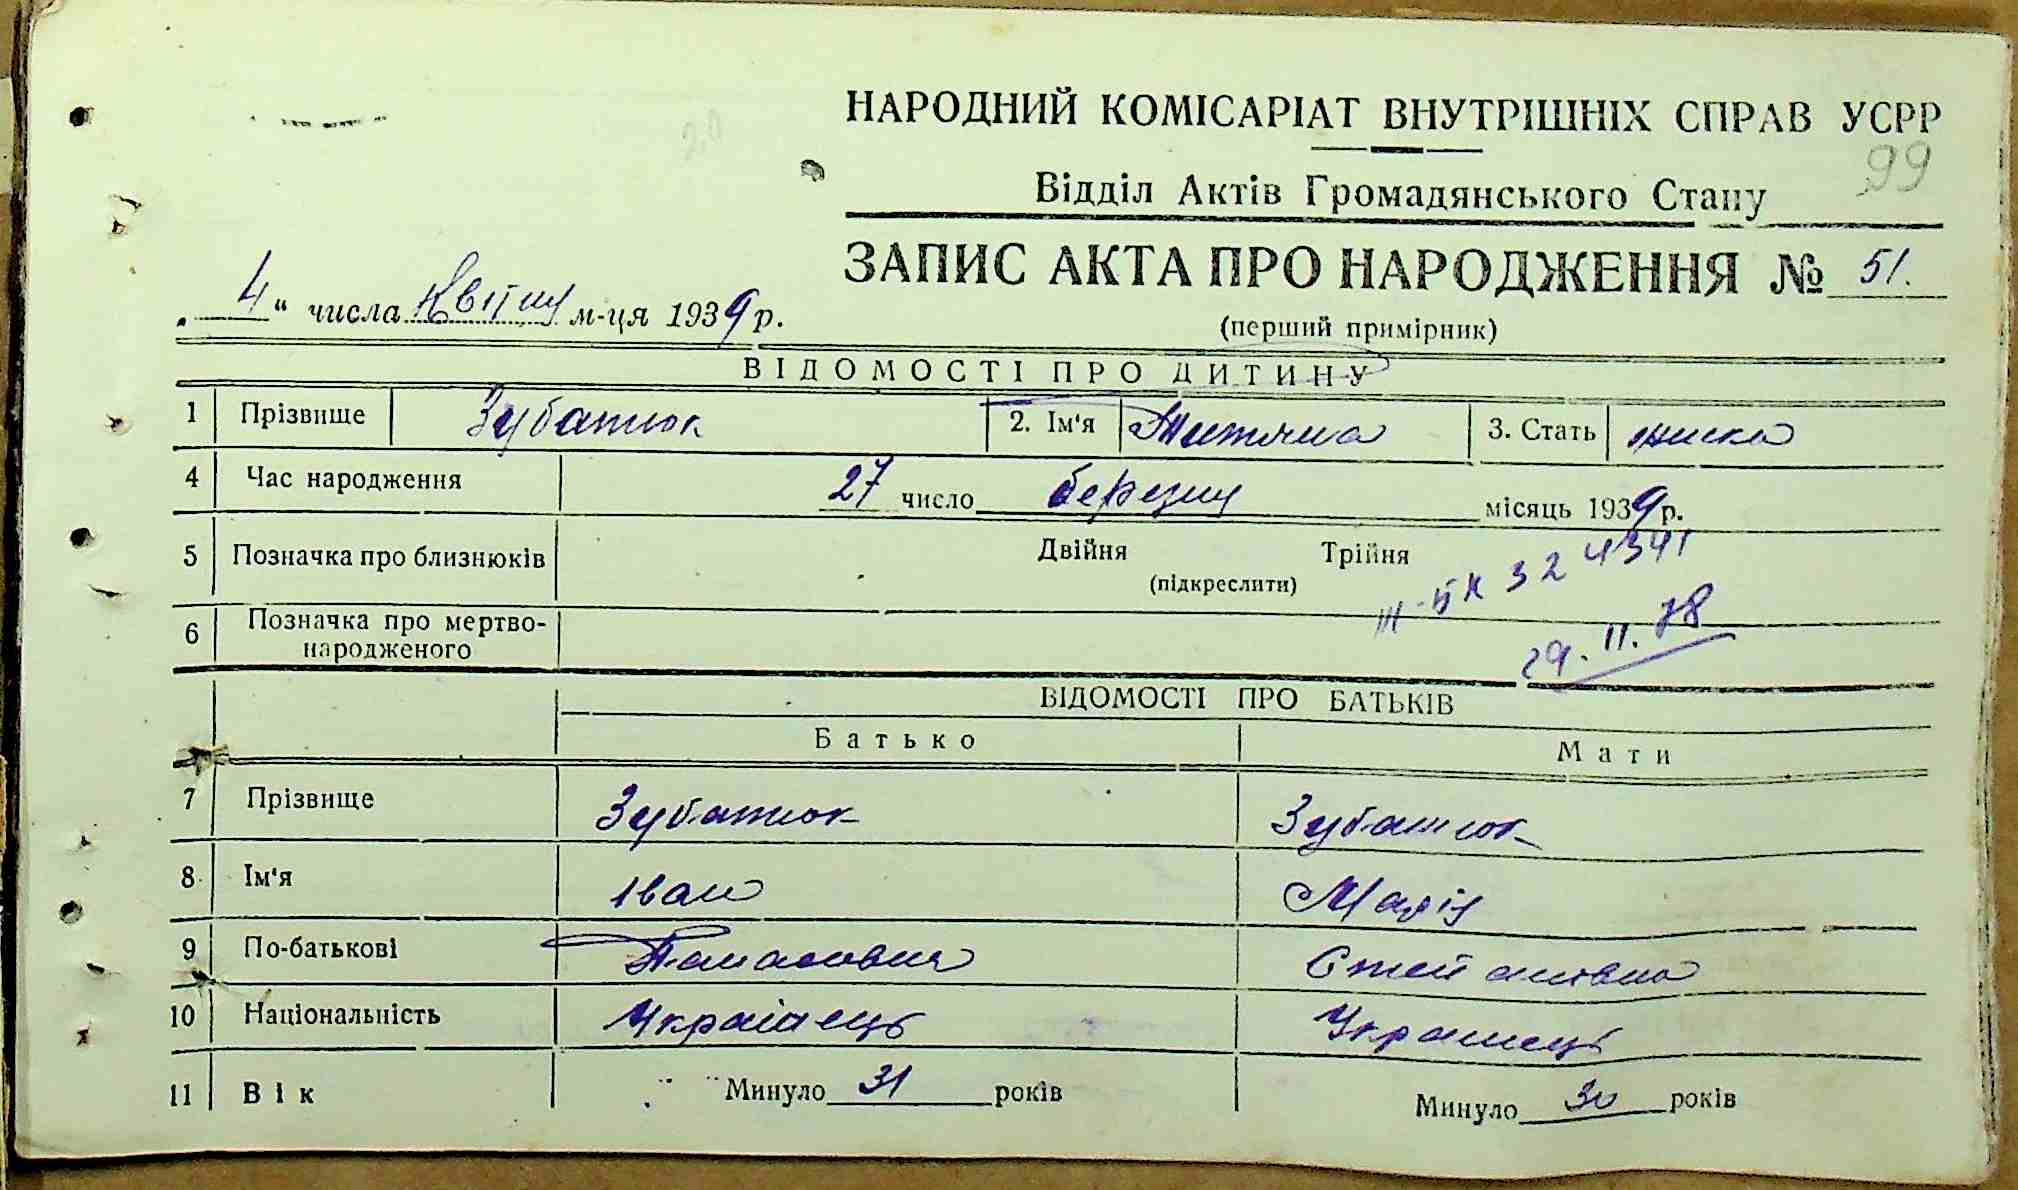 НАРОДНИЙ КОМІСАРІАТ ВНУТРІШНІХ СПРАВ УСРР
99
Відділ Актів Громадянського Стану
ЗАПИС АКТА ПРО НАРОДЖЕННЯ № 51.
„ 4 “ числа квітня м-ця 1939 р.
(перший примірник)
ВІДОМОСТІ ПРО ДИТИНУ
1 Прізвище Зубатюк 2. Ім'я Тетяна 3. Стать жіноча
4 Час народження 27 число березня місяць 1939 р.
5 Позначка про близнюків Двійня Трійня
(підкреслити)
324341
6 Позначка про мертво-
народженого
29.11.78
ВІДОМОСТІ ПРО БАТЬКІВ
Батько Мати
7 Прізвище Зубатюк Зубатюк
8 Ім'я Іван Марія
9 По-батькові Панасович Степановна
10 Національність Українець Українець
11 Вік Минуло 31 років Минуло 30 років